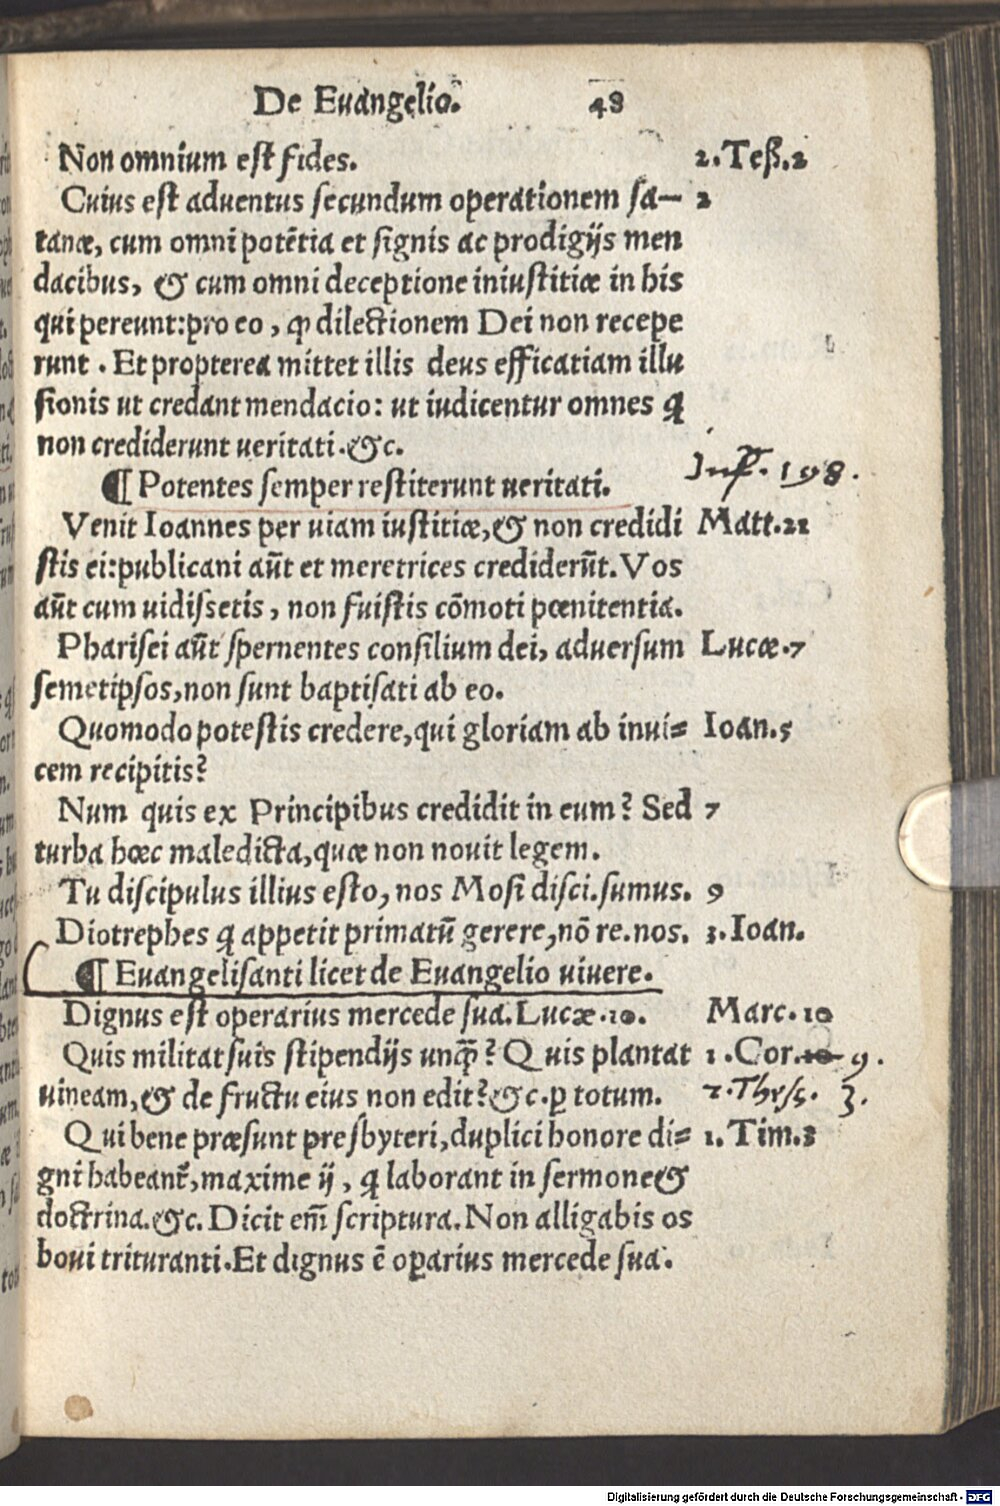 De Euangelio. 48
Non omnium est fides. 2.Teß.2
Cuius est aduentus secundum operationem sa- 2
tanæ, cum omni potẽtia et signis ac prodigijs men
dacibus, & cum omni deceptione iniustitiæ in his
qui pereunt:pro eo, ꝙ dilectionem Dei non recepe
runt. Et propterea mittet illis deus efficatiam illu
sionis ut credant mendacio: ut iudicentur omnes q̃
non crediderunt ueritati.&c.
¶ Potentes semper restiterunt ueritati. Inf. 198.
Venit Ioannes per uiam iustitiæ,& non credidi Matt.21
stis ei:publicani aũt et meretrices crediderũt.Vos
aũt cum uidissetis, non fuistis cõmoti pœnitentia.
Pharisei aũt spernentes consilium dei, aduersum Lucæ.7
semetipsos,non sunt baptisati ab eo.
Quomodo potestis credere,qui gloriam ab inui= Ioan.5
cem recipitis?
Num quis ex Principibus credidit in eum? Sed 7
turba hæc maledicta,quæ non nouit legem.
Tu discipulus illius esto,nos Mosi disci.sumus. 9
Diotrephes q̃ appetit primatũ gerere,nõ re.nos. 3.Ioan.
¶ Euangelisanti licet de Euangelio uiuere.
Dignus est operarius mercede sua.Lucæ.10. Marc.10
Quis militat suis stipendijs unꝙ̃? Quis plantat 1.Cor.10 9.
uineam,& de fructu eius non edit?&c.ꝑ totum. 2.Thess. 3.
Qui bene præsunt presbyteri,duplici honore di= 1.Tim.3
gni habeant̃,maxime ij, q̃ laborant in sermone&
doctrina.&c.Dicit em̃ scriptura.Non alligabis os
boui trituranti.Et dignus ẽ oꝑarius mercede sua.
Digitalisierung gefördert durch die Deutsche Forschungsgemeinschaft - DFG